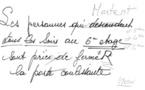 Montent
Les personnes qui descendent
dans les soirs au 6e etage
sont priées de fermer
la porte coulissante